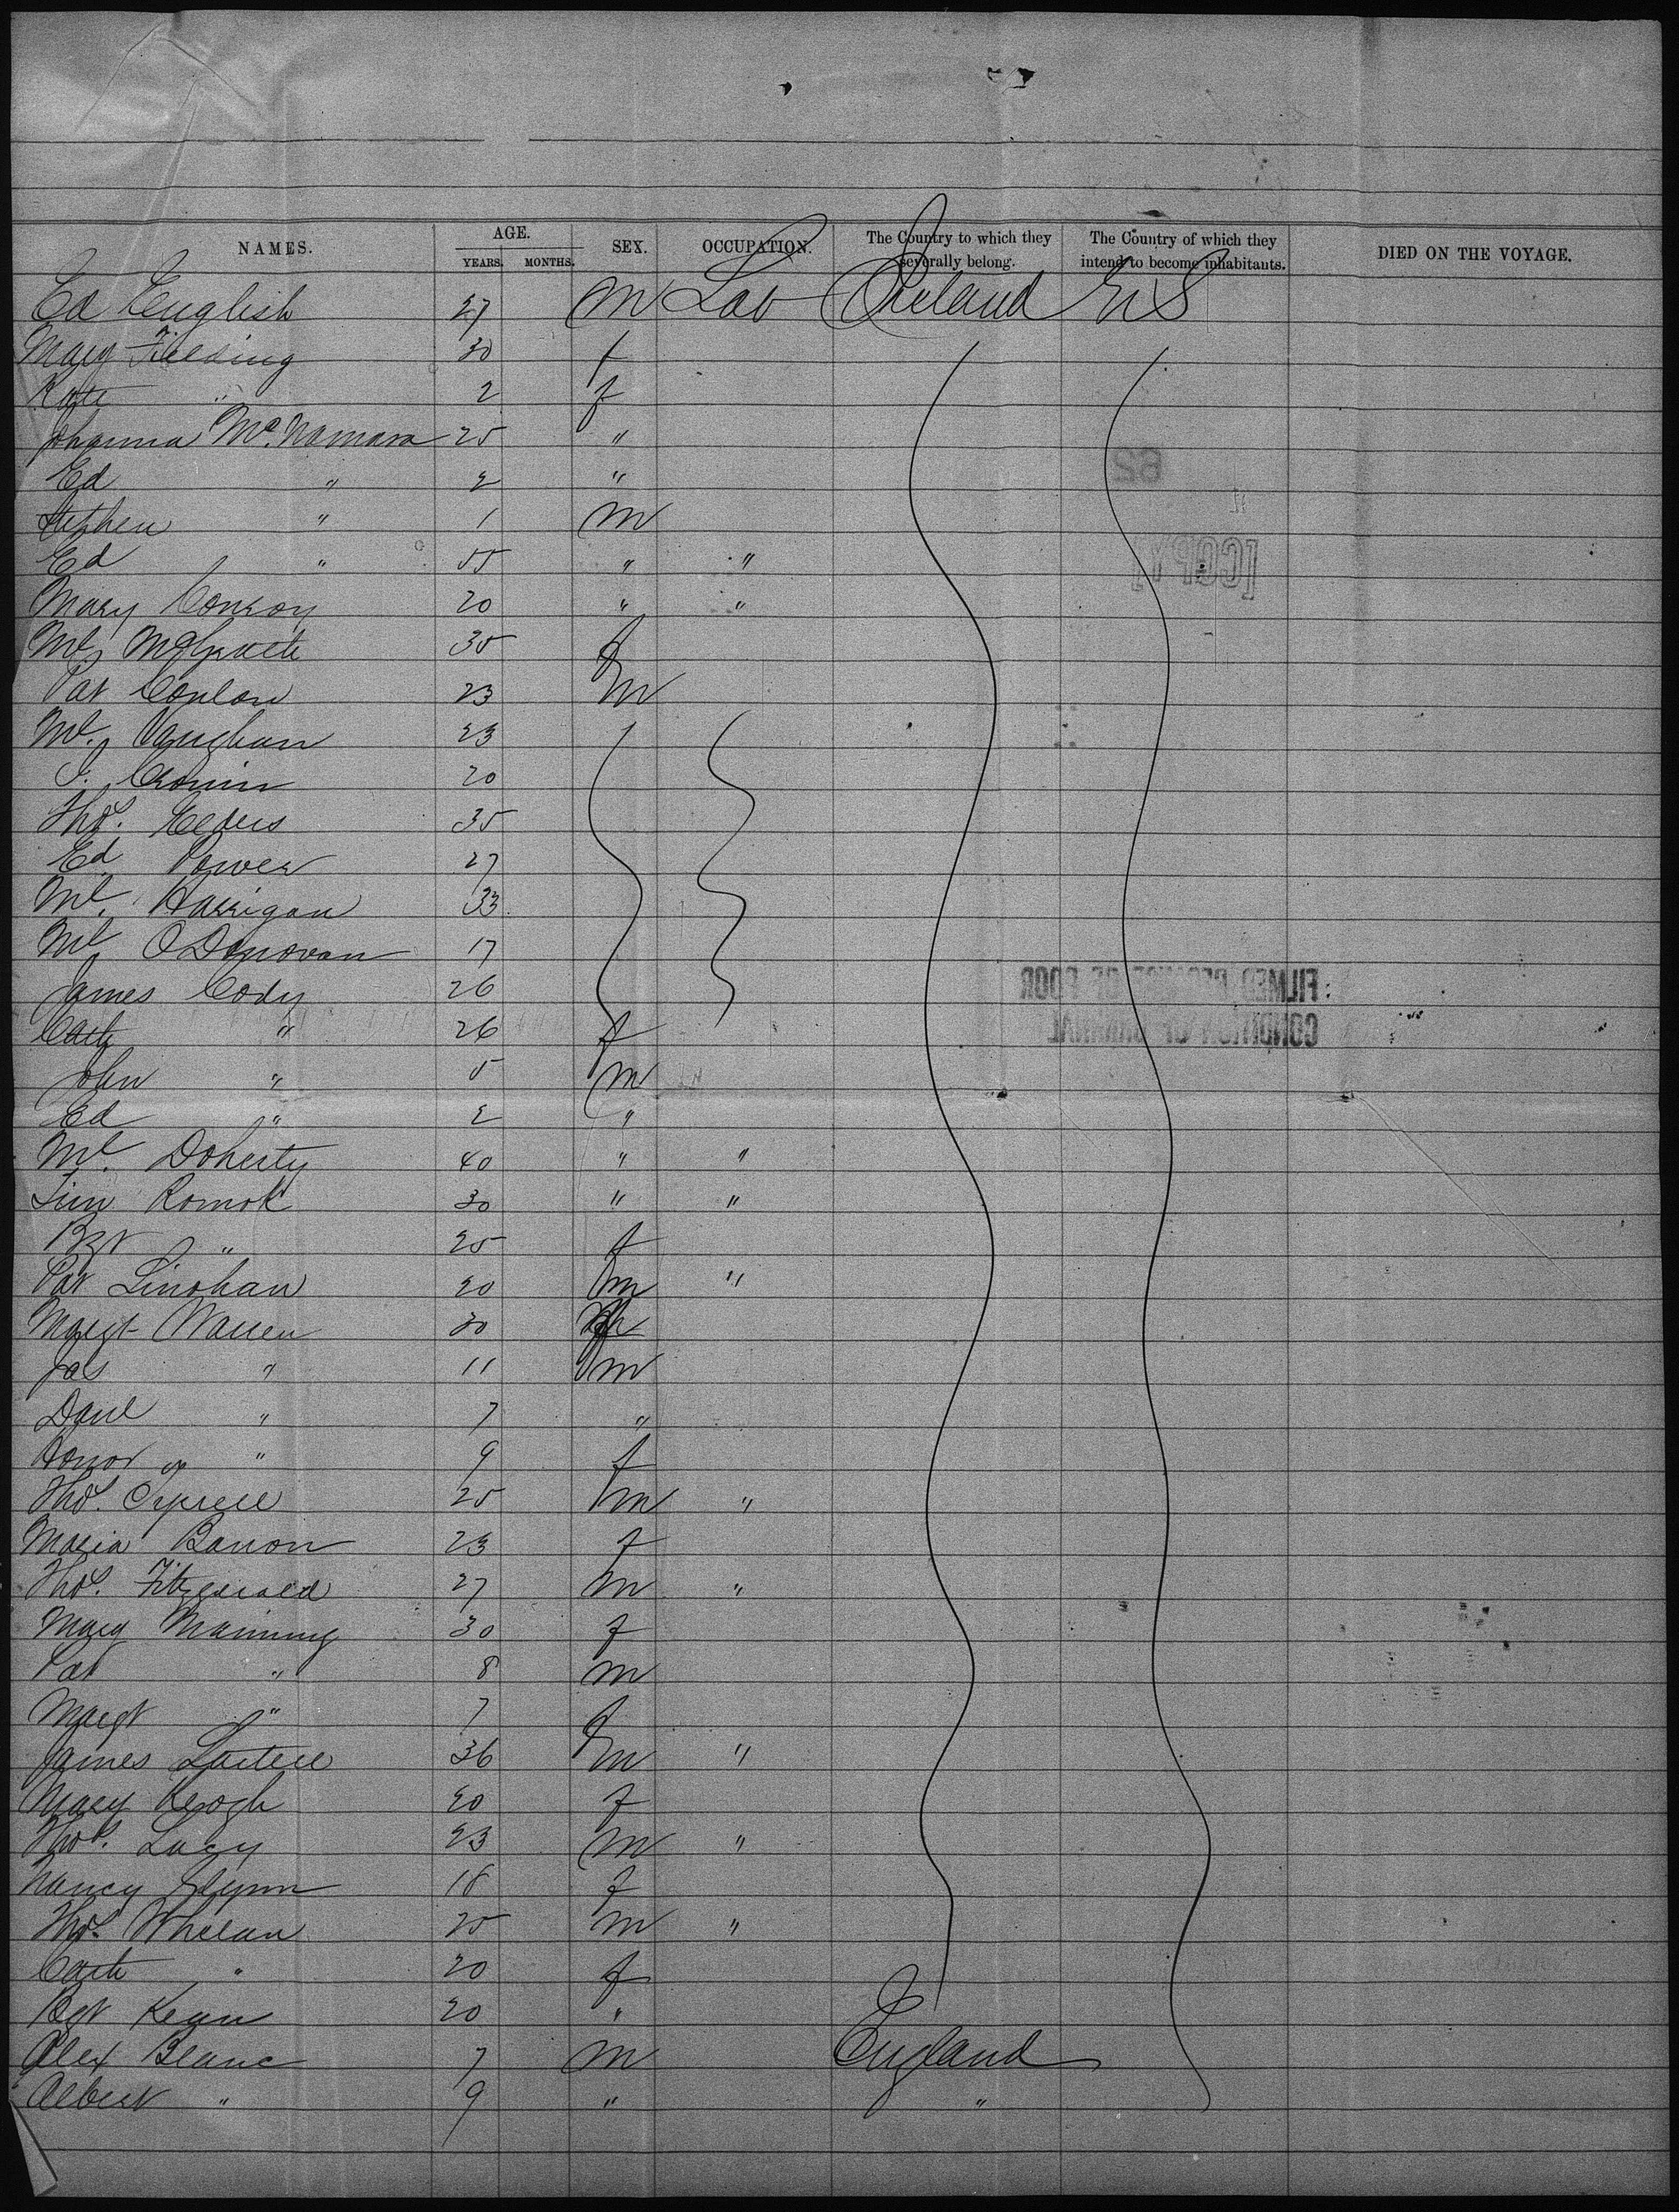 NAMES. AGE. YEARS. MONTHS. SEX. OCCUPATION. The Country to which they severally belong. The Country of which they intend to become inhabitants. DIED ON THE VOYAGE.
Ed English 27 m Lab Ireland US
Mary Fielding 30 f
Kate " 2 f
Johanna McNamara 25 "
Ed " 2 "
Stephen " 1 m
Ed " 55 " "
Mary Conroy 20 " "
Ml McGrath 35 f
Pat Conlon 23 m
Ml. Vaughan 23
J. Cronin 20
Thos. 35
Ed Power 27
Ml. Harrigan 33
Ml O Donovan 17
James Cody 26
Cath " 26 f
John " 5 m
Ed " 2 "
Ml. Doherty 40 " "
Tim 30 " "
Bgt " 25 f
Pat Linohan 20 m "
Margt Warren 30
Jas " 11 m
Danl " 7 "
Honor " 9 f
Thos. 25 m "
Maria Barron 23 f
Thos. Fitzgerald 27 m "
Mary Manning 30 f
Pat " 8 m
Margt " 7 f
James 36 m "
Mary Keogh 20 f
Thos. Lacy 23 m "
Nancy Glynn 18 f
Thos. Whelan 25 m "
Cath " 20 f
Bgt Kean 20 "
Alex Blanc 7 m England
Albert " 9 " "
82
[COPY]
FILMED BECAUSE OF POOR
CONDITION OF ORIGINAL